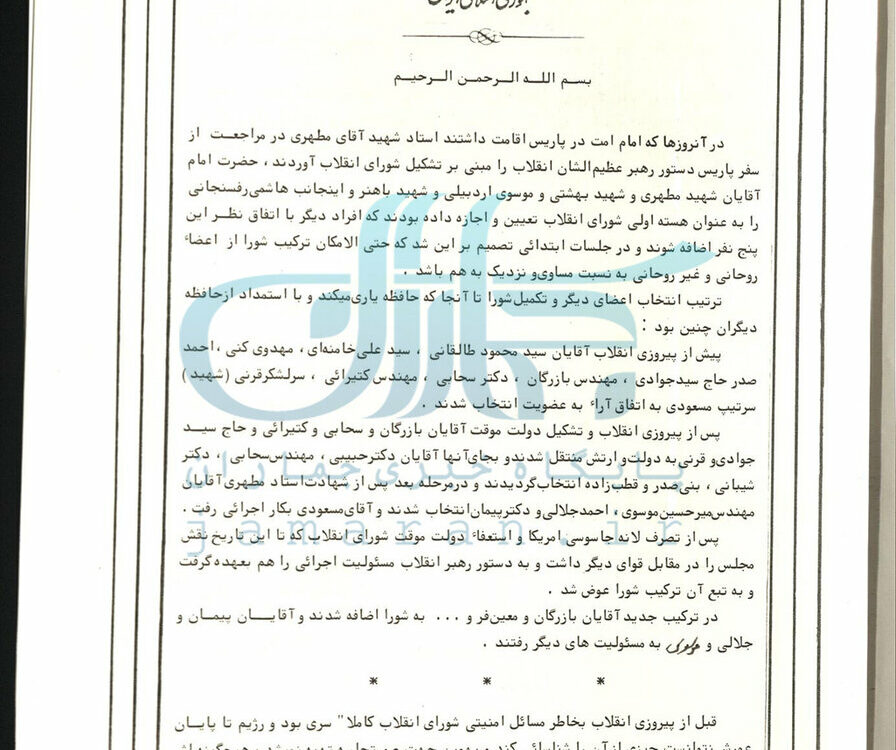 جمهوری اسلامی ایران
بسم الله الرحمن الرحیم
در آنروزها که امام امت در پاریس اقامت داشتند استاد شهید آقای مطهری در مراجعت از
سفر پاریس دستور رهبر عظیم‌الشان انقلاب را مبنی بر تشکیل شورای انقلاب آوردند ، حضرت امام
آقایان شهید مطهری و شهید بهشتی و موسوی اردبیلی و شهید باهنر و اینجانب هاشمی‌رفسنجانی
را به عنوان هسته اولی شورای انقلاب تعیین و اجازه داده بودند که افراد دیگر با اتفاق نظر این
پنج نفر اضافه شوند و در جلسات ابتدائی تصمیم بر این شد که حتی الامکان ترکیب شورا از اعضاء
روحانی و غیر روحانی به نسبت مساوی‌و نزدیک به هم باشد .
ترتیب انتخاب اعضای دیگر و تکمیل‌شورا تا آنجا که حافظه یاری‌میکند و با استمداد ازحافظه
دیگران چنین بود :
پیش از پیروزی انقلاب آقایان سید محمود طالقانی ، سید علی‌خامنه‌ای ، مهدوی کنی ، احمد
صدر حاج سیدجوادی ، مهندس بازرگان ، دکتر سحابی ، مهندس‌کتیرائی ، سرلشکرقرنی (شهید )
سرتیپ مسعودی به اتفاق آراء به عضویت انتخاب شدند .
پس از پیروزی انقلاب و تشکیل دولت موقت آقایان بازرگان و سحابی و کتیرائی و حاج سید
جوادی‌و قرنی‌به دولت‌و ارتش منتقل شدندو بجای‌آنها آقایان دکترحبیبی ، مهندس‌سحابی ، دکتر
شیبانی ، بنی‌صدر و قطب‌زاده انتخاب‌گردیدند و درمرحله بعد پس از شهادت‌استاد مطهری‌آقایان
مهندس‌میرحسین‌موسوی ، احمدجلالی‌و دکترپیمان‌انتخاب شدند و آقای‌مسعودی بکار اجرائی رفت .
پس از تصرف لانه جاسوسی امریکا و استعفاء دولت موقت شورای انقلاب که تا این تاریخ نقش
مجلس را در مقابل قوای دیگر داشت و به دستور رهبر انقلاب مسئولیت اجرائی را هم بعهده‌گرفت
و به تبع آن ترکیب شورا عوض شد .
در ترکیب جدید آقایان بازرگان و معین‌فر و ... به شورا اضافه شدند و آقایان پیمان و
جلالی و به مسئولیت های دیگر رفتند .
* * *
قبل از پیروزی انقلاب بخاطر مسائل امنیتی شورای انقلاب کاملا" سری بود و رژیم تا پایان
پایگاه خبری جماران
jamaran.ir